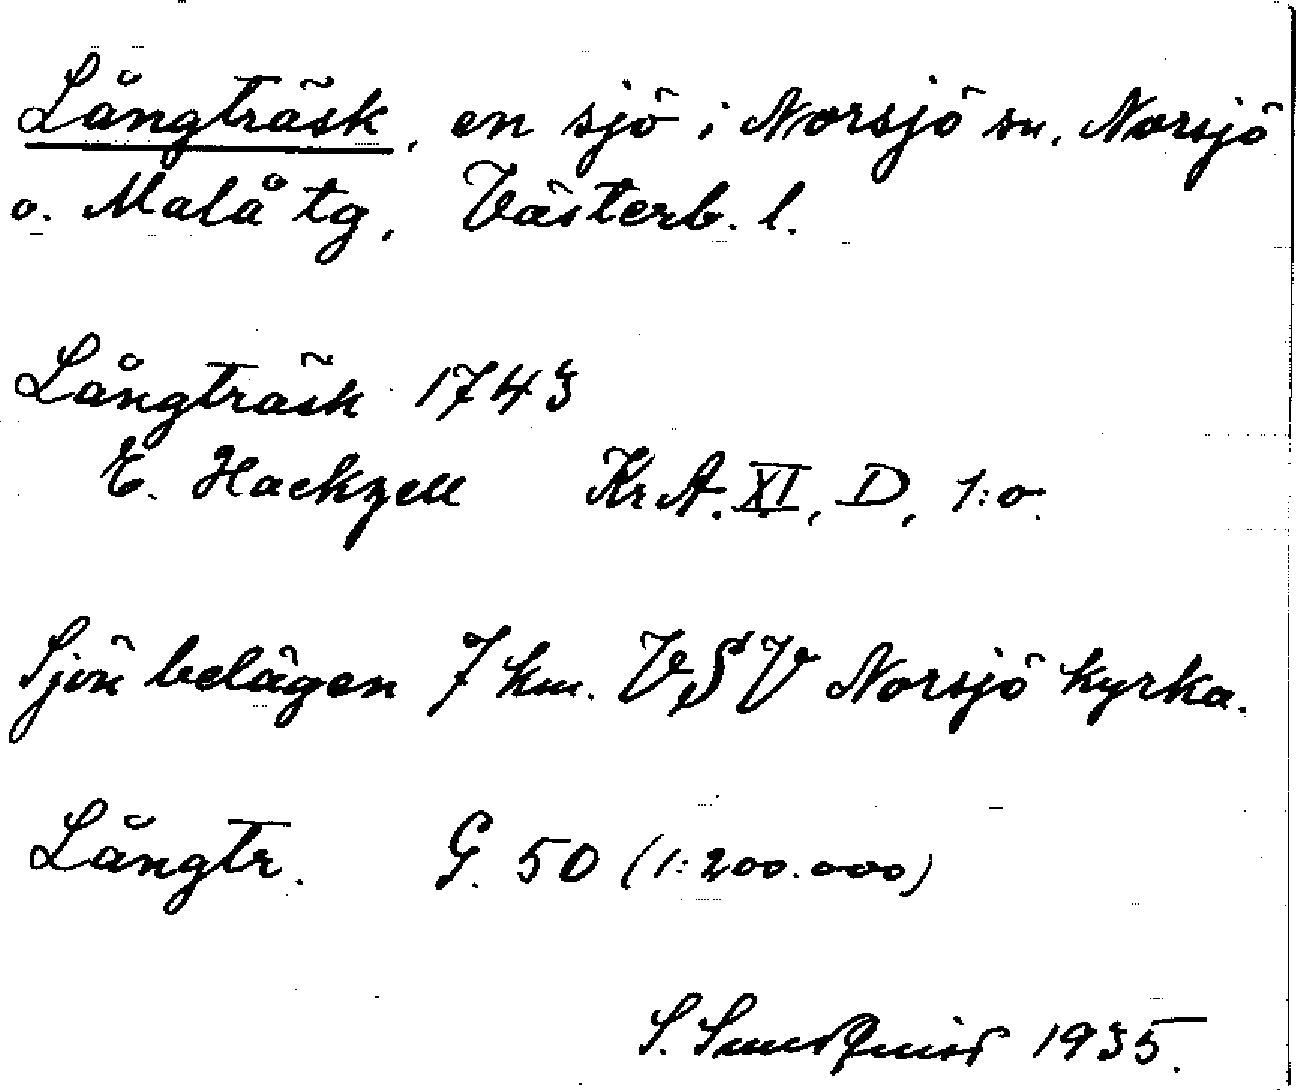 Långträsk, en sjö i Norsjö sn, Norsjö
o. Malå tg, Västerb. l.
Långträsk 1743
E. Hackzell Kr A. XI, D, 1:o.
Sjön belägen 7 km. VSV Norsjö kyrka.
Långtr. G. 50 (1:200.000)
S. Sundqvist 1935.